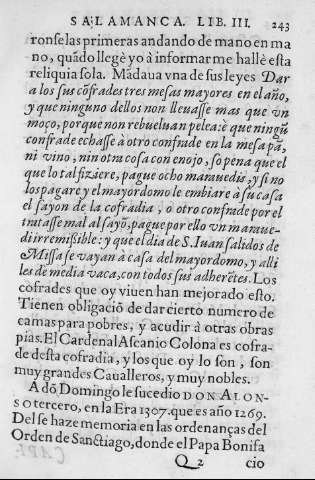 SALAMANCA. LIB. III. 243
ronse las primeras andando de mano en ma
no, quãdo llegè yo à informarme hallè esta
reliquia sola. Mãdaua vna de sus leyes Dar
a los sus cõfrades tres mesas mayores en el año,
y que ninguno dellos non lleuasse mas que vn
moço, porque non rebueluan pelea: è que ningũ
confrade echasse à otro confrade en la mesa pã,
ni vino, nin otra cosa con enojo, so pena que el
que lo tal fiziere, pague ocho marauedis, y si no
los pagare y el mayordomo le embiare à su casa
el sayon de la cofradia, o otro confrade por el
tratasse mal al sayõ, pague por ello vn maraue-
di irremissible: y que el dia de S. Iuan salidos de
Missa se vayan à casa del mayordomo, y alli
les de media vaca, con todos sus adherẽtes. Los
cofrades que oy viuen han mejorado esto.
Tienen obligaciõ de dar cierto numero de
camas para pobres, y acudir à otras obras
pias. El Cardenal Ascanio Colona es cofra-
de desta cofradia, y los que oy lo son, son
muy grandes Caualleros, y muy nobles.
A dõ Domingo le sucedio DON ALON-
SO tercero, en la Era 1307. que es año 1269.
Del se haze memoria en las ordenanças del
Orden de Sanctiago, donde el Papa Bonifa
Q 2 cio